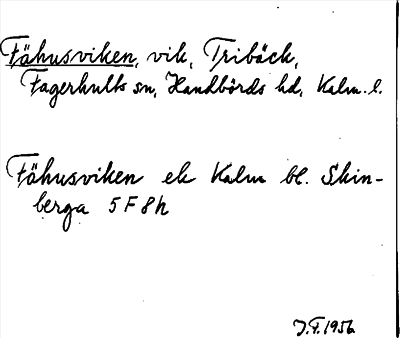 Fähusviken, vik, Tribäck,
Fagerhults sn, Handbörds hd, Kalm. l.
Fähusviken ek Kalm bl. Skin-
berga 5 F 8h
J.F. 1956